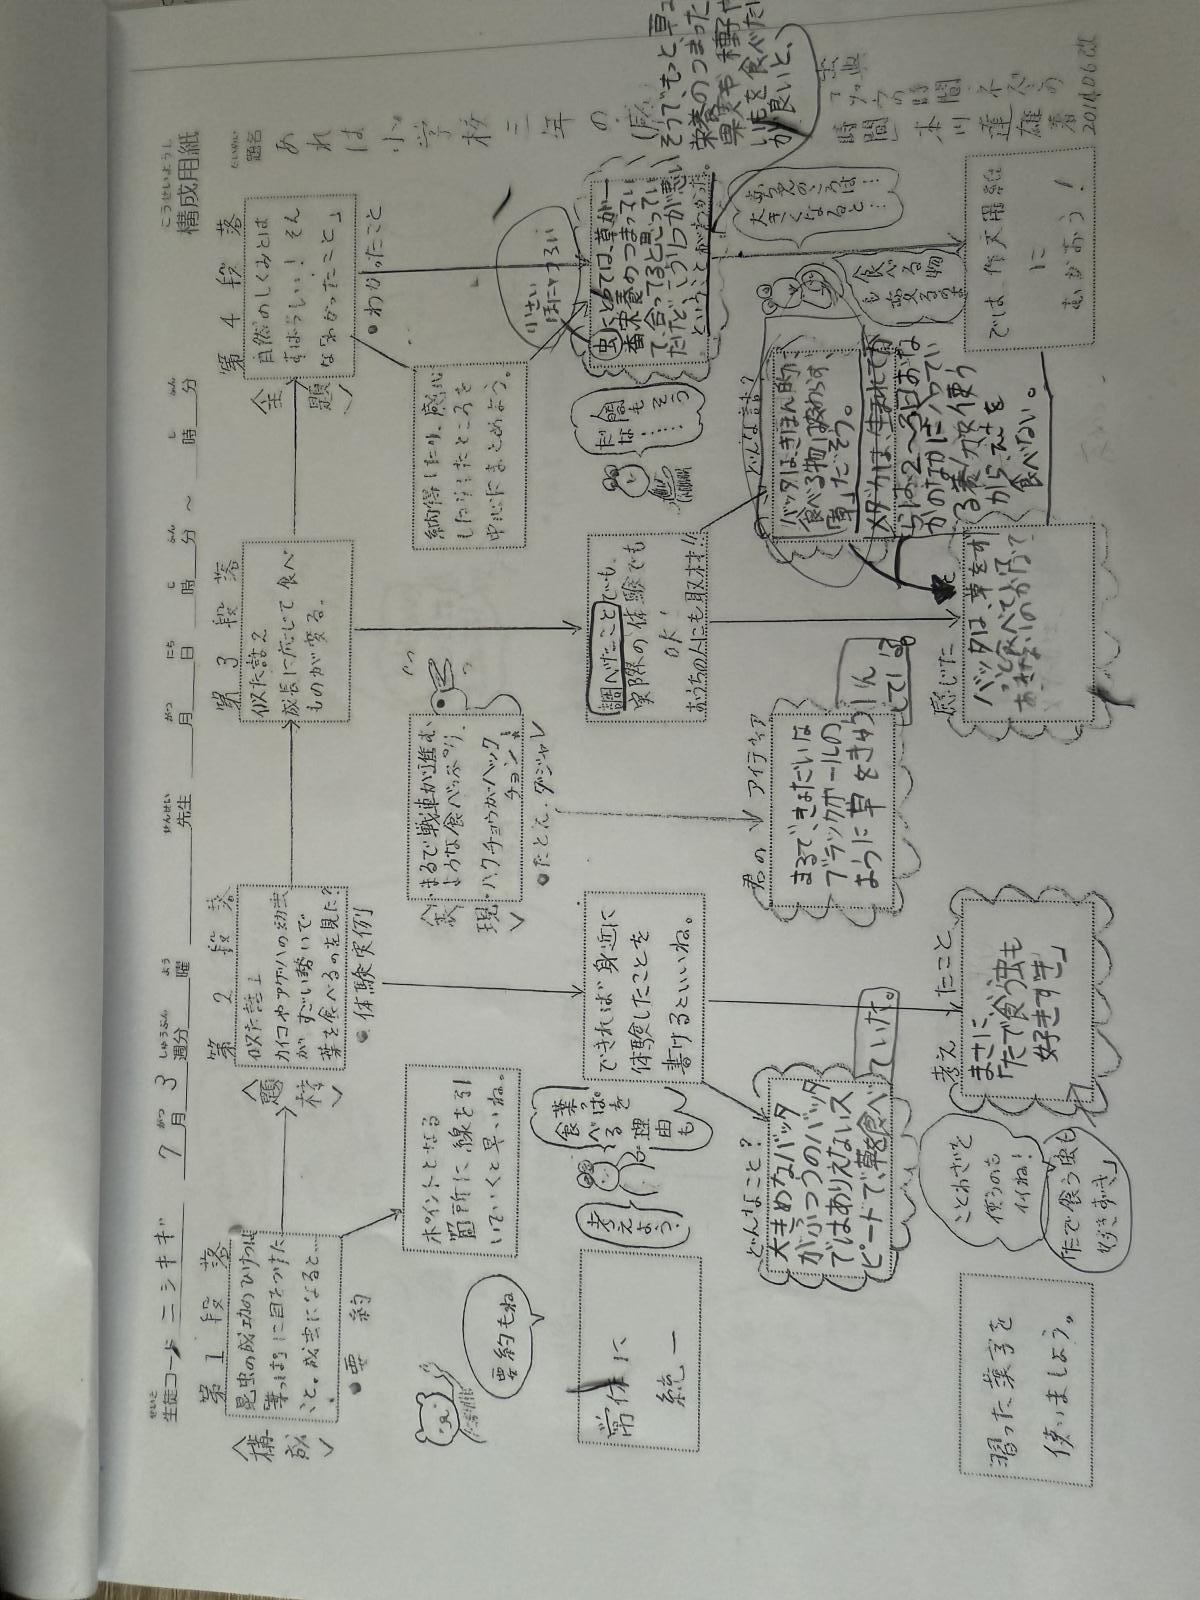 構成用紙
こうせいようし
題名
だいめい
あれは小学校三年の
生徒コード ニシキギ 7月3週分 曜 先生 月 日 時 分 〜 時 分
第1段落
昆虫の成功のひけつは
葉っぱに目をつけた
こと。成虫になると…
〈構成〉
●要約
ポイントとなる
箇所に線を引
いていくと早いね。
要約もね
常体に
統一
習った漢字を
使いましょう。
第2段落
似た話1
カイコやアゲハの幼虫
が、すごい勢いで
葉を食べるのを見た?
〈題材〉
●体験実例
できれば身近に
体験したことを
書けるといいね。
葉っぱを
食べる
理由も
考えよう?
どんなこと?
大きめなバッタ
がふつうのバッタ
ではありえないス
ピードで、葉を食べ
ていた。
考えたこと
まさに、
「たで食う虫も
好きすき」
ことわざを
使うのも
イイね!
「たで食う虫も
好きずき」
〈表現〉
・まるで戦車が進む、
ような食べっぷり。
・ハクチョウがハック
チョン!
●たとえ・ダジャレ
君のアイディア
まるで、きょだいな
ブラックホールの
ように草をきゅうしゅう
している
第3段落
似た話2
成長に応じて食べ
ものが変る。
調べたことでも、
実際の体験でも
OK!
おうちの人にも取材!!
どんな話?
バッタはきほん的に、
食べる物は変わらず、
「草」だそう。
メダカは、生まれてか
らは2〜3日おな
かのなかに入ってい
る養分を使う
から、えさを
食べない。
食べる物
も変るの
赤ちゃんのころは…
大きくなると…
感じたこと
バッタは、草をず
っと食べていて、
あきないのか?
第4段落
自然のしくみとは
すばらしい! そん
な「わかったこと」
〈主題〉
●わかったこと
納得したり、感心
したりしたところを
中心にまとめよう。
人間も
そう
だな……
小さい
ほにゅうるい
虫にとっては、草が一
番栄養のつまってい
て、合ってると思ってい
たけど、こういうのが悪い
ということがわかった。
そうで、もっと、草よ
栄養のつまった
果実や種子や
いもを食べた
が良いと、
では作文用紙
に
むかおう!
出典
「ゾウの時間 ネズミの
時間」 本川達雄 著
2014.06改